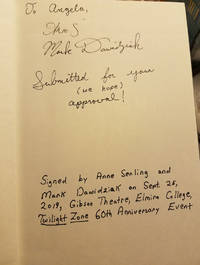 To Angela,
Mark Dawidziak
Submitted for you
(we hope)
approval!
Signed by Anne Serling and
Mark Dawidziak on Sept. 25,
2019, Gibson Theatre, Elmira College,
Twilight Zone 60th Anniversary Event